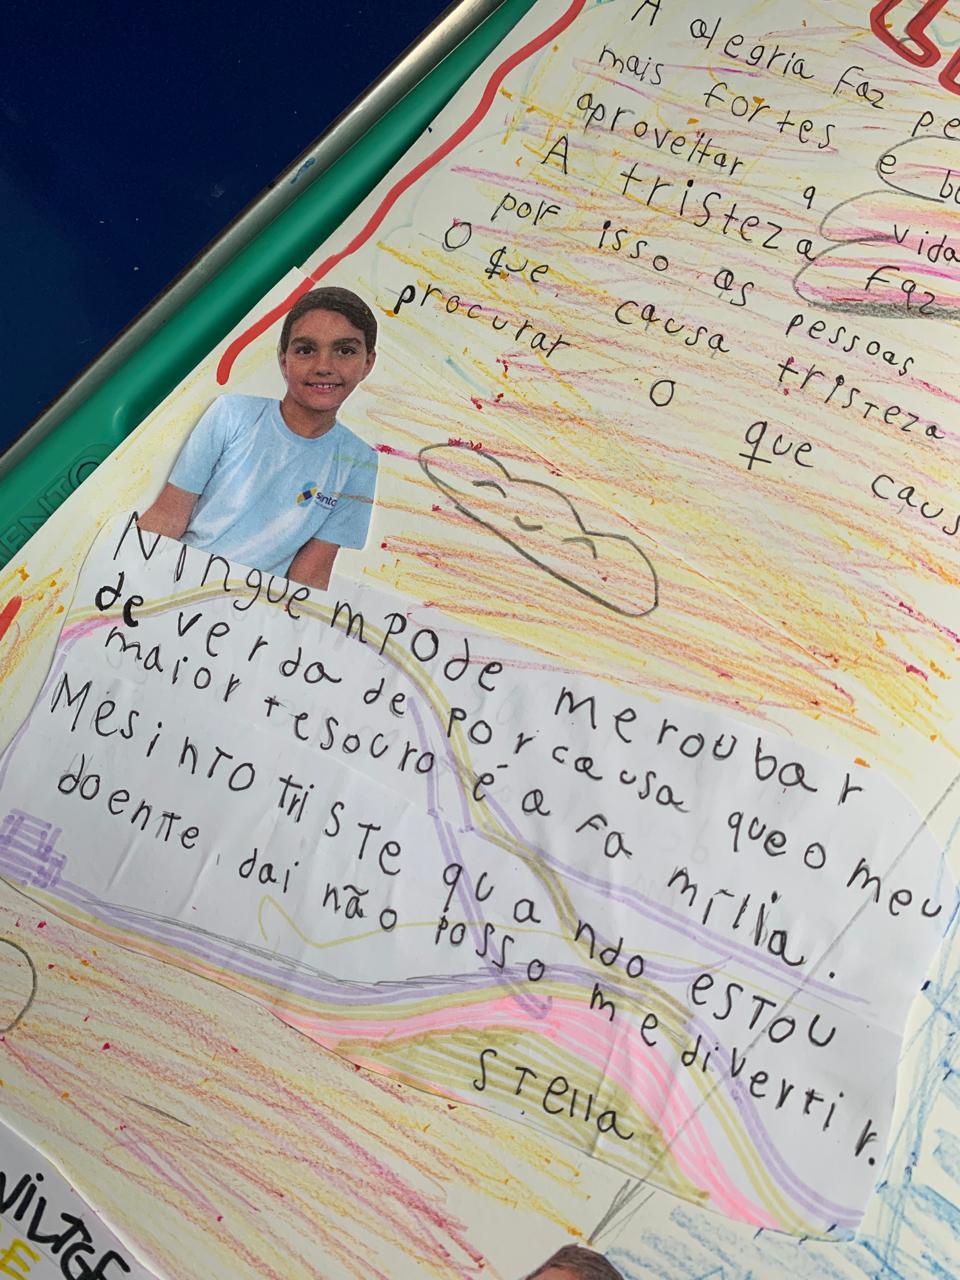 A alegria faz
mais fortes e
aproveitar a vida
A tristeza faz
por isso as pessoas
O que causa tristeza
procurar o que
sinto
Ninguem Pode me roubar
de verda de por causa que o meu
maior tesouro é a família.
Me sinto triste quando estou
doente, dai não posso me divertir.
Stella